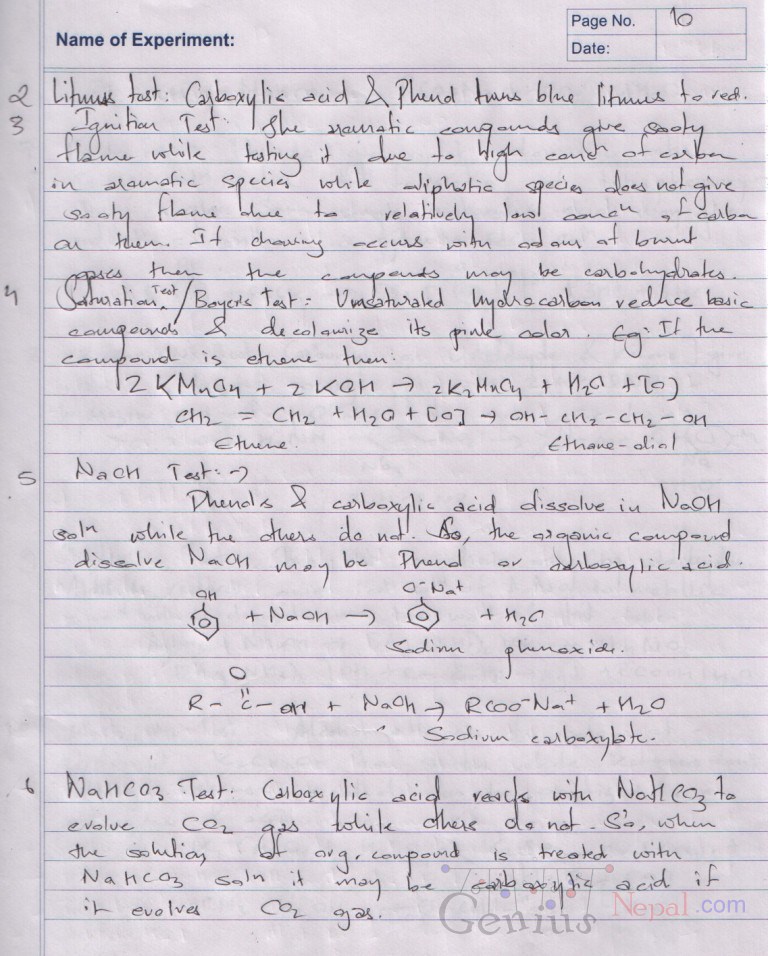 Page No. 10
Name of Experiment:
Date:
2 Litmus test: Carboxylic acid & Phenol turns blue litmus to red.
3 Ignition Test: The aromatic compounds give sooty
flame while testing it due to high concn of carbon
in aromatic species while aliphatic species does not give
sooty flame due to relatively low concn of carbon
on them. If charring occurs with odour of burnt
gases then the compounds may be carbohydrates.
4 Saturation Test/Bayer's Test: Unsaturated hydrocarbon reduce basic
compounds & decolourize its pink color. Eg: If the
compound is ethene then:
2 KMnO4 + 2 KOH → 2K2MnO4 + H2O + [O]
CH2 = CH2 + H2O + [O] → OH - CH2 - CH2 - OH
Ethene. Ethane-diol
5 NaOH Test: →
Phenols & carboxylic acid dissolve in NaOH
soln while the others do not. So, the organic compound
dissolve NaOH may be Phenol or carboxylic acid.
OH O-Na+
+ NaOH → + H2O
Sodium phenoxide.
O
R - C - OH + NaOH → RCOO-Na+ + H2O
Sodium carboxylate.
6 NaHCO3 Test: Carboxylic acid reacts with NaHCO3 to
evolve CO2 gas while others do not. So, when
the solution of org. compound is treated with
NaHCO3 soln it may be carboxylic acid if
it evolves CO2 gas.
Genius Nepal.com